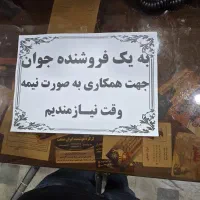 به یک فروشنده جوان
جهت همکاری به صورت نیمه
وقت نیازمندیم